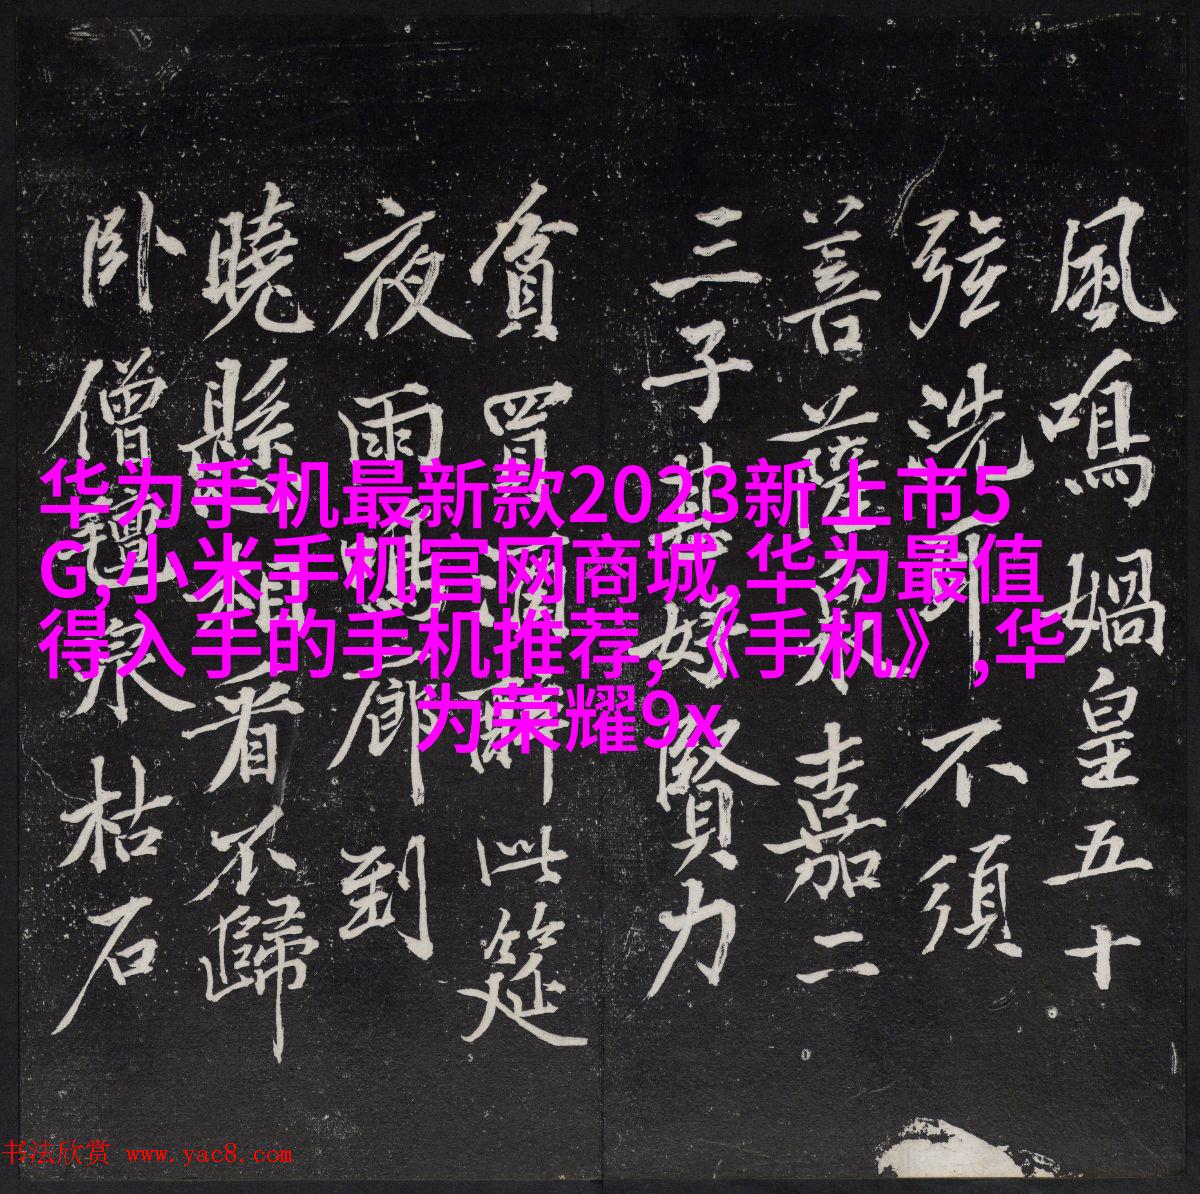 華为手机最新款2023新上市5
G,小米手机官网商城,华为最值
得入手的手机推荐,《手机》,华
为荣耀9x
風鳴媧皇五十
弦洗耳不須
菩薩泉嘉二
三子甚好賢力
貧買酒醉此筵
夜雨鳴廊到
曉懸相看不歸
臥僧氈泉枯石
书法欣赏 www.yac8.com